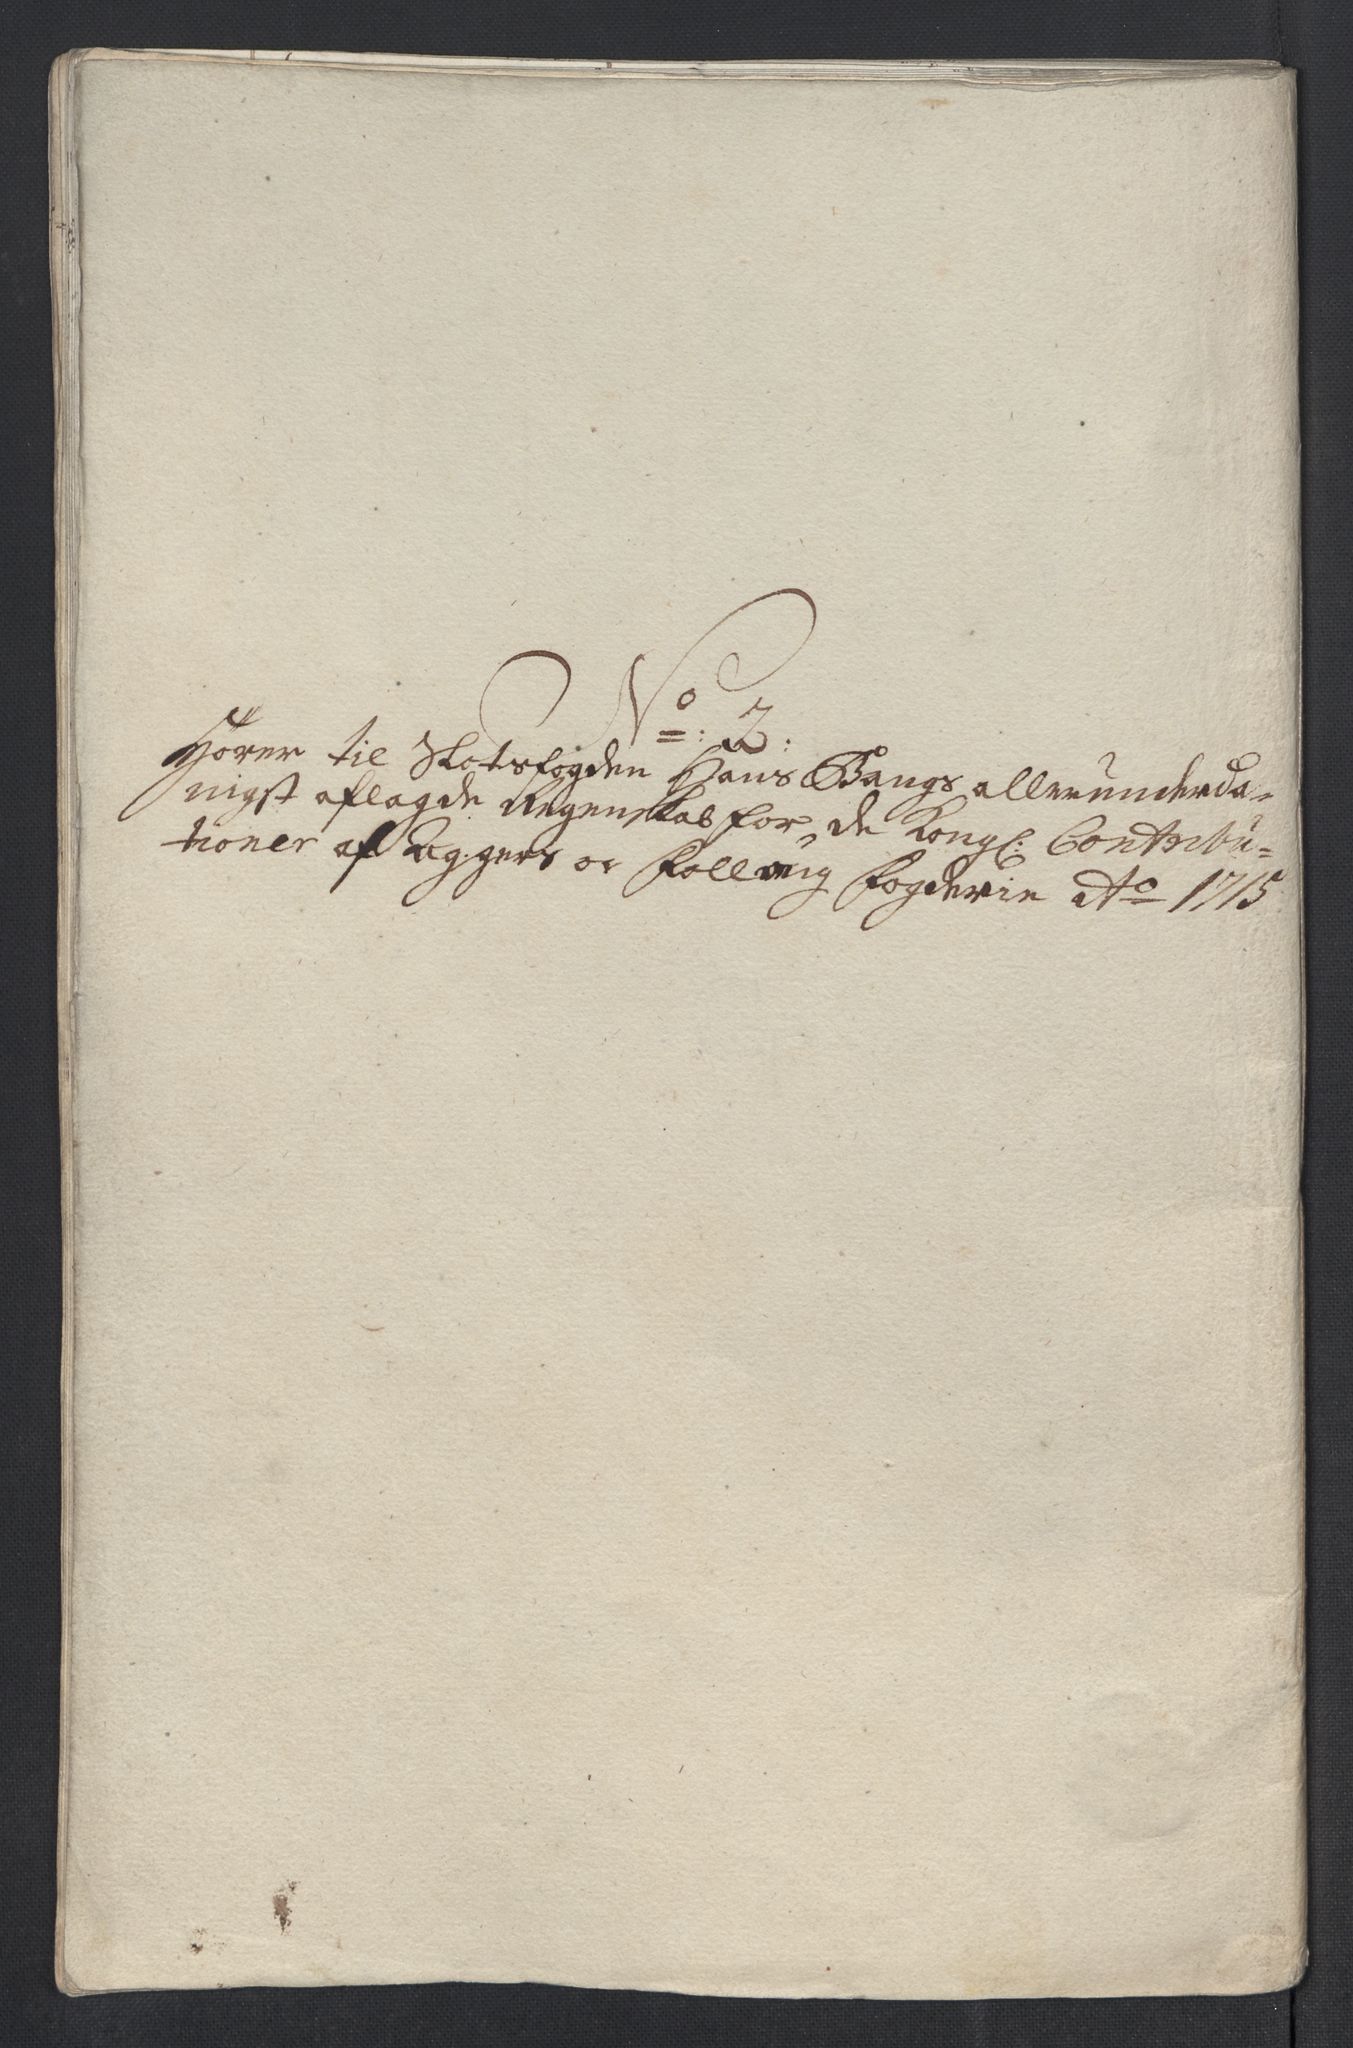 No: 2:
Hörer til Slotsfogden Hans Bangs allerunderda-
nigst aflagde Regenskab for de Kongl: Contribu-
tioner af Aggers oc Folloug fogderie Ao 1715